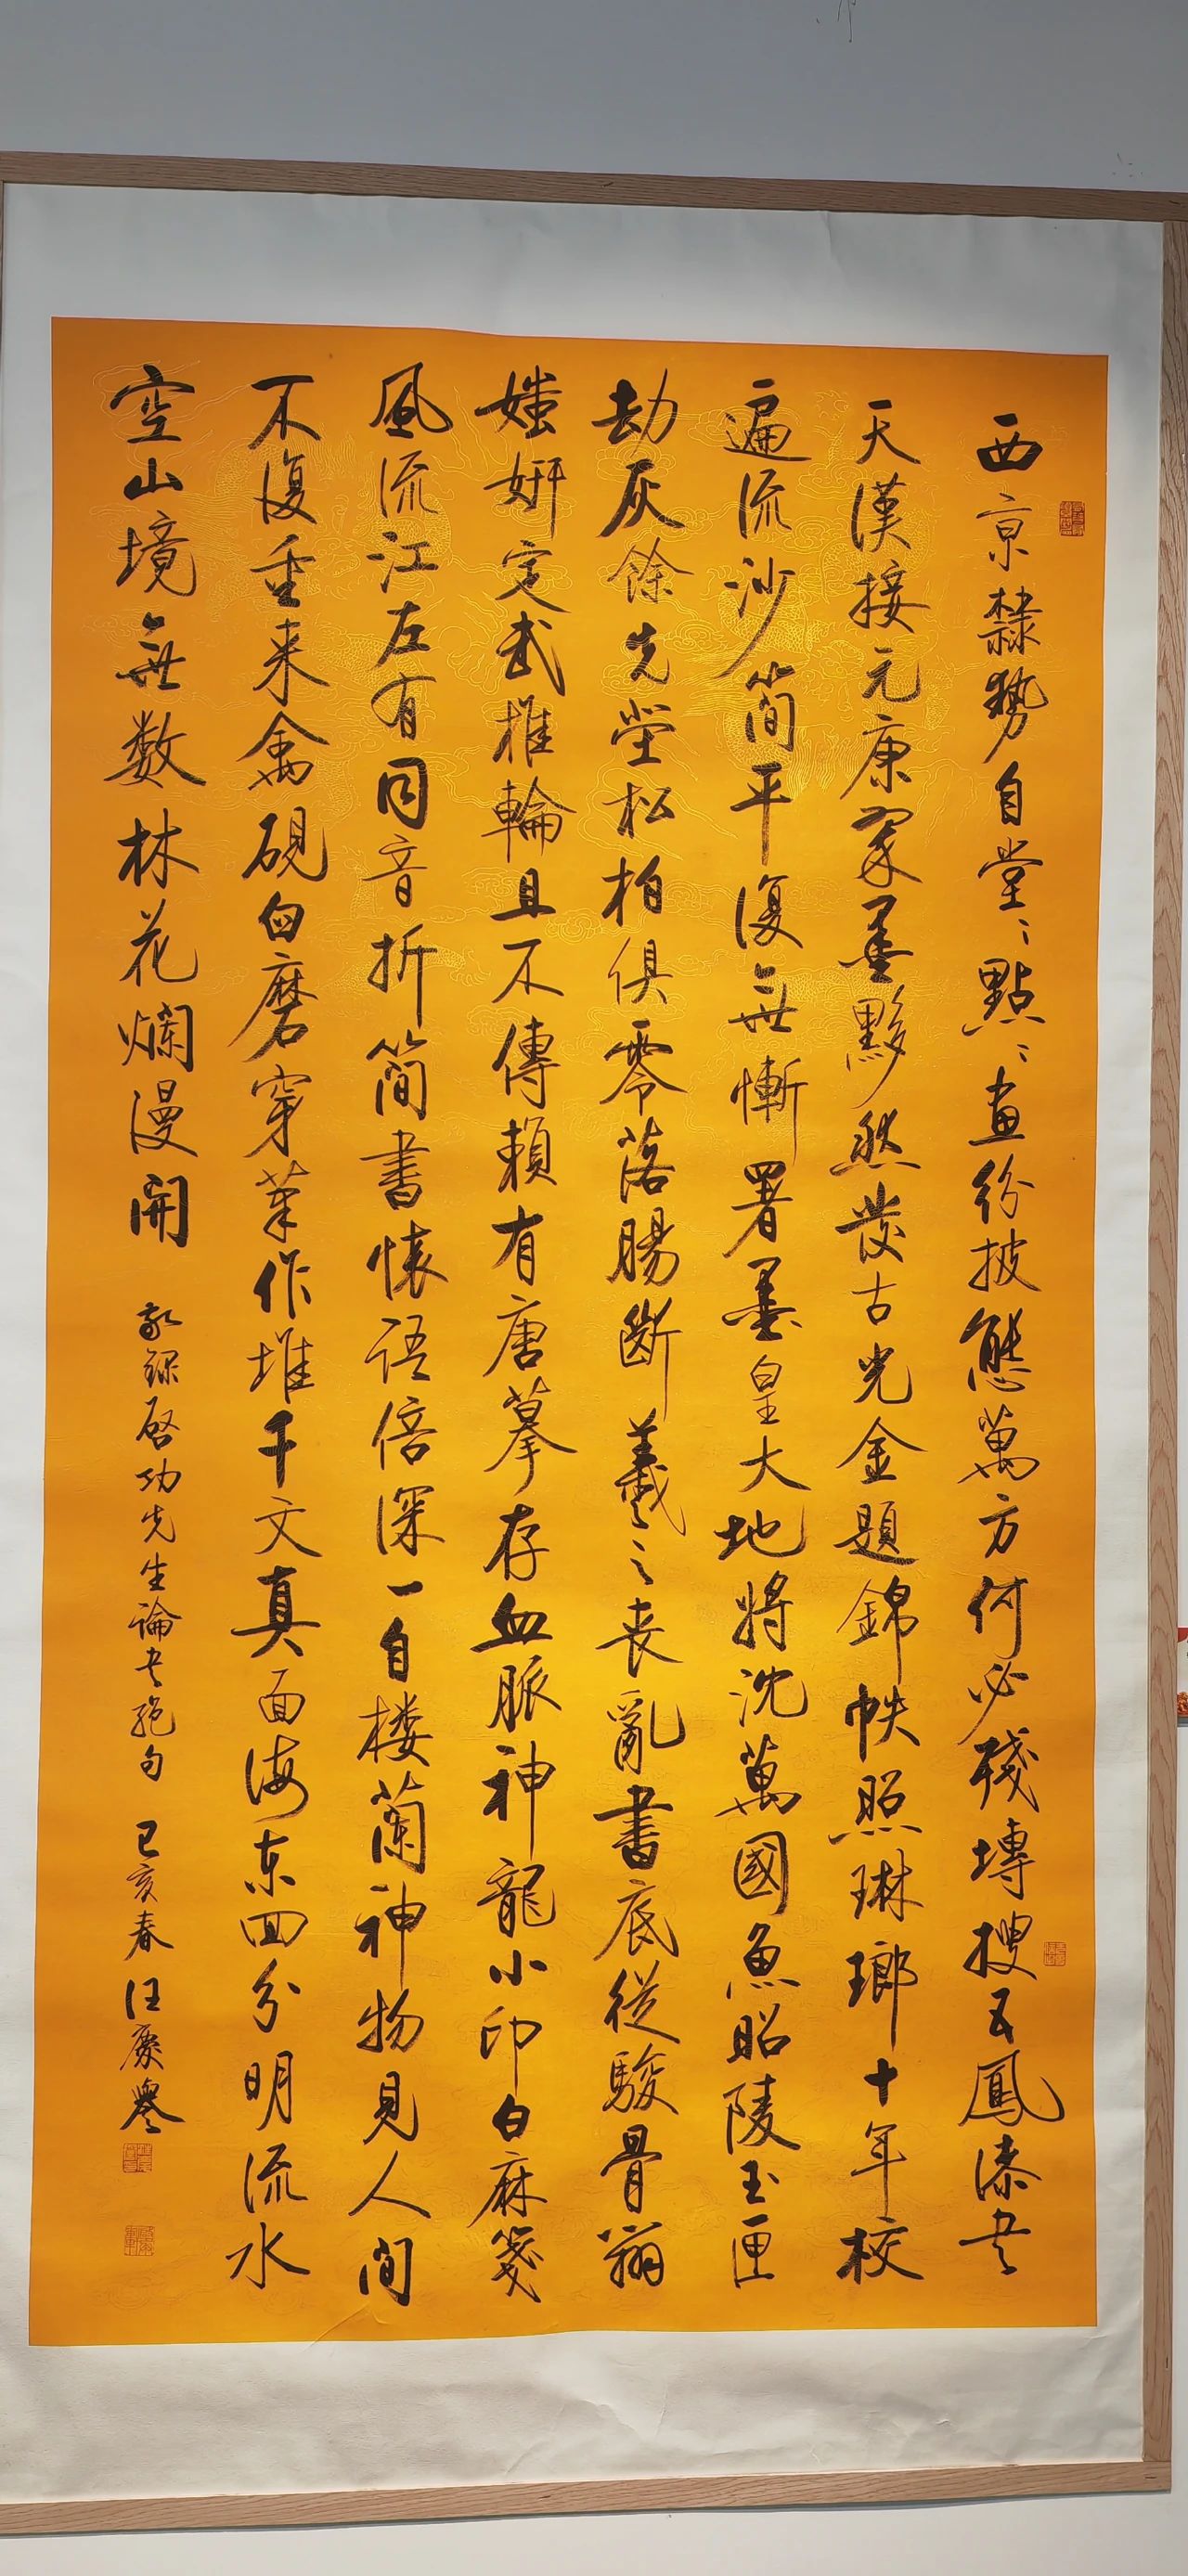 西京隸勢自堂〻點〻畫紛披態萬方何必殘塼搜五鳳漆书
天漢接元康翠墨黟然發古光金題錦帙照琳瑯十年校
遍流沙簡平復無慚署墨皇大地將沈萬國魚昭陵玉匣
劫灰餘先塋松柏俱零落腸斷羲之丧亂書底從駿骨辨
媸妍定武椎輪且不傳賴有唐摹存血脈神龍小印白麻箋
風流江左有同音折簡書懷語倍深一自楼蘭神物見人間
不復重来禽硯臼磨穿筆作堆千文真面海东回分明流水
空山境無数林花爛漫開
敬錄启功先生論书绝句
己亥春汪慶譽